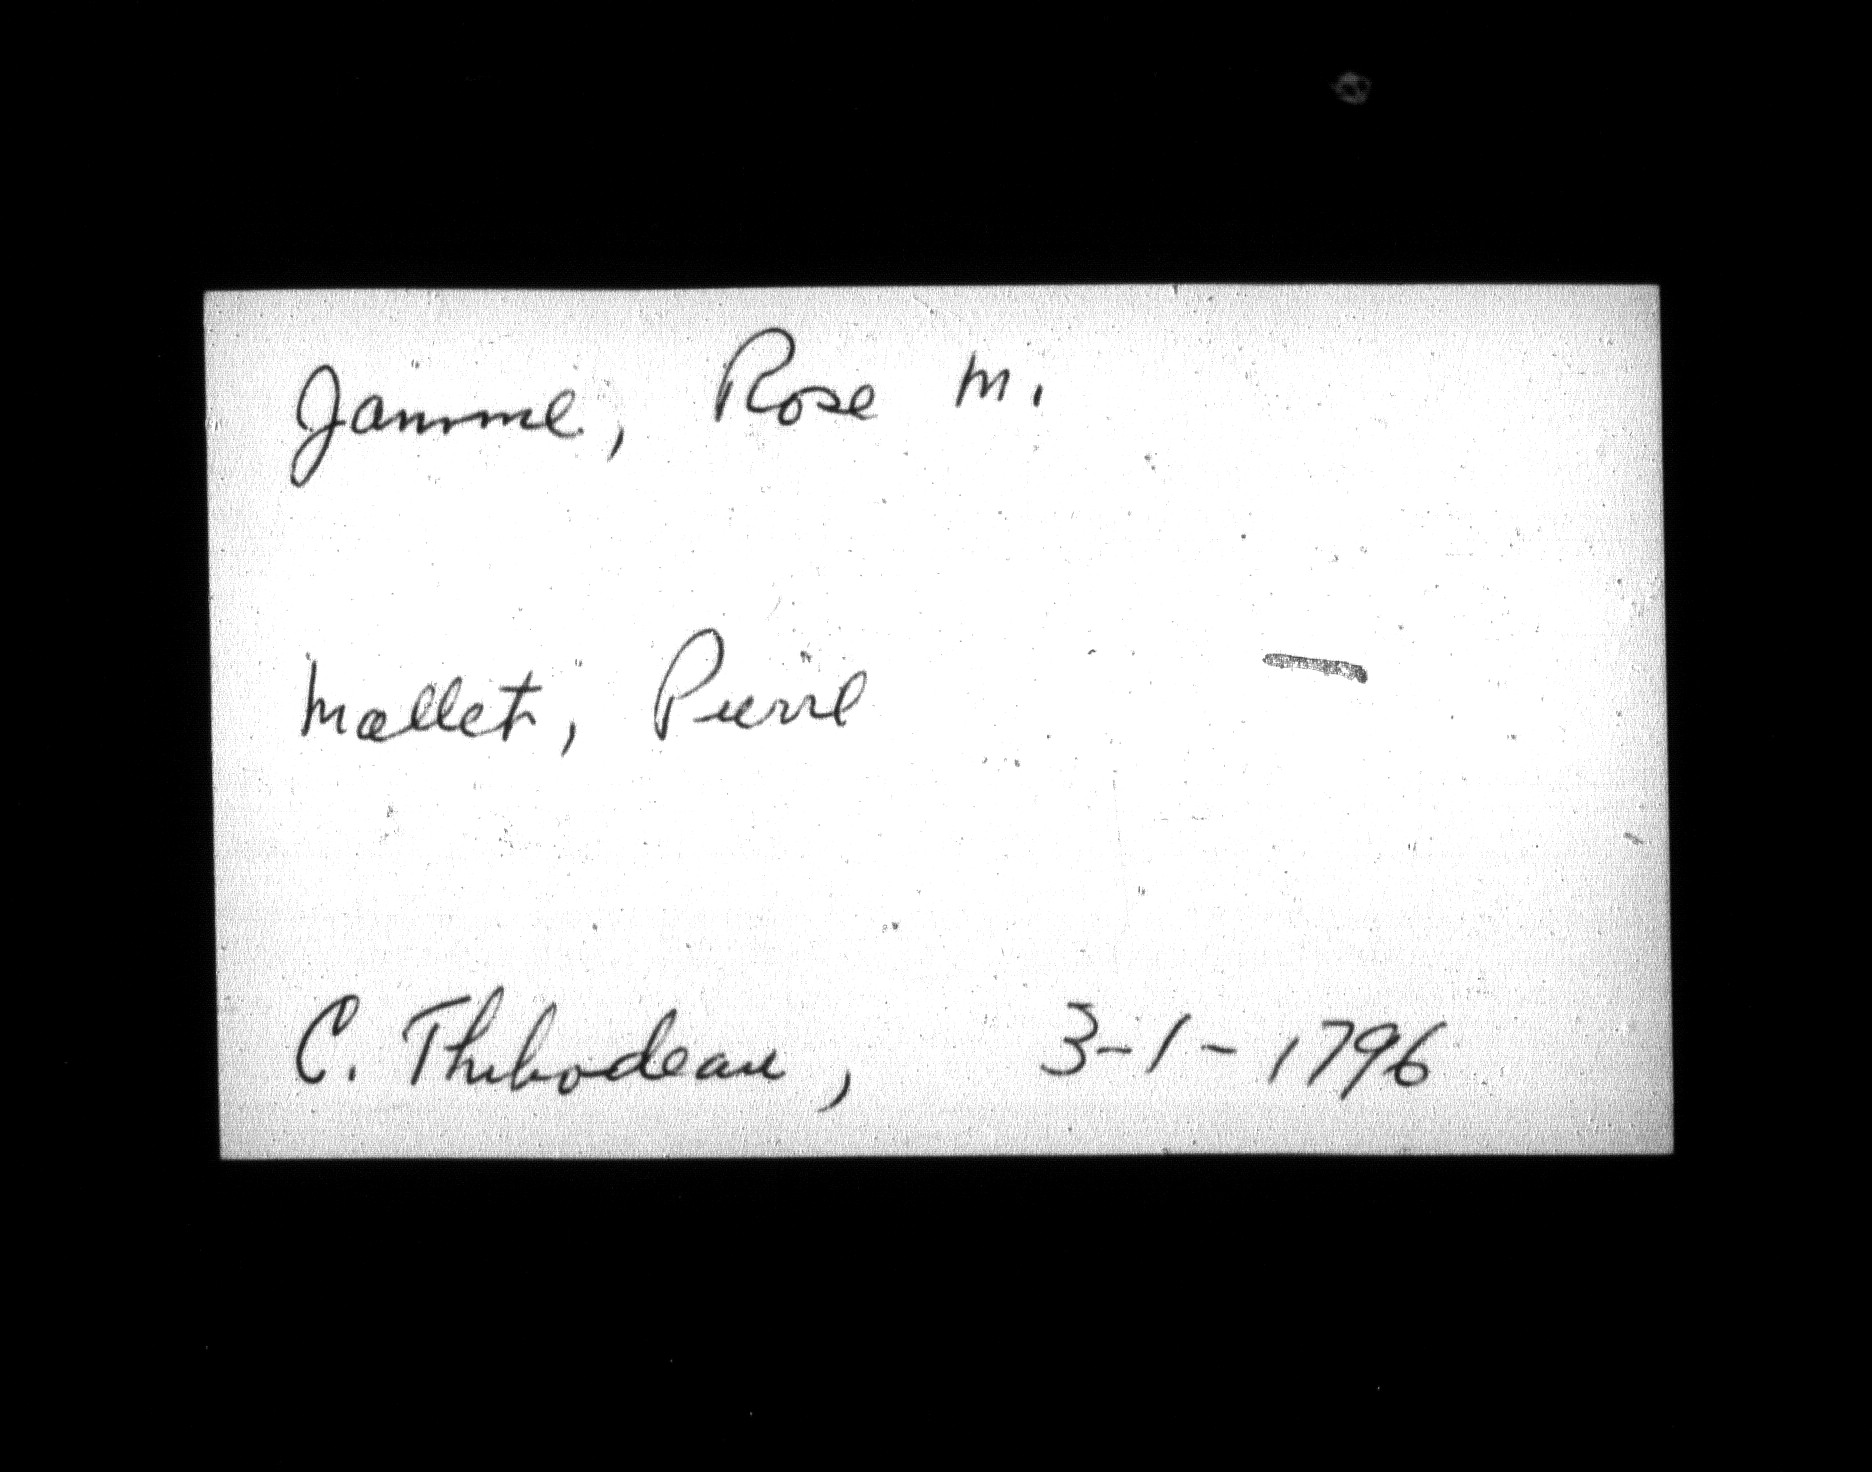 Jamme, Rose M.
Mallet, Pierre
C. Thibodeau, 3-1-1796